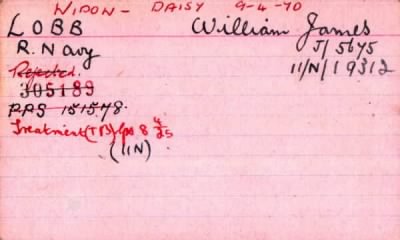 WIDOW - DAISY 9-4-70
LOBB William James
R. Navy J/5675
Rejected. 11/N/19312
305189
PPS 151578.
Treatment (TB) 8 4/25
(11N)